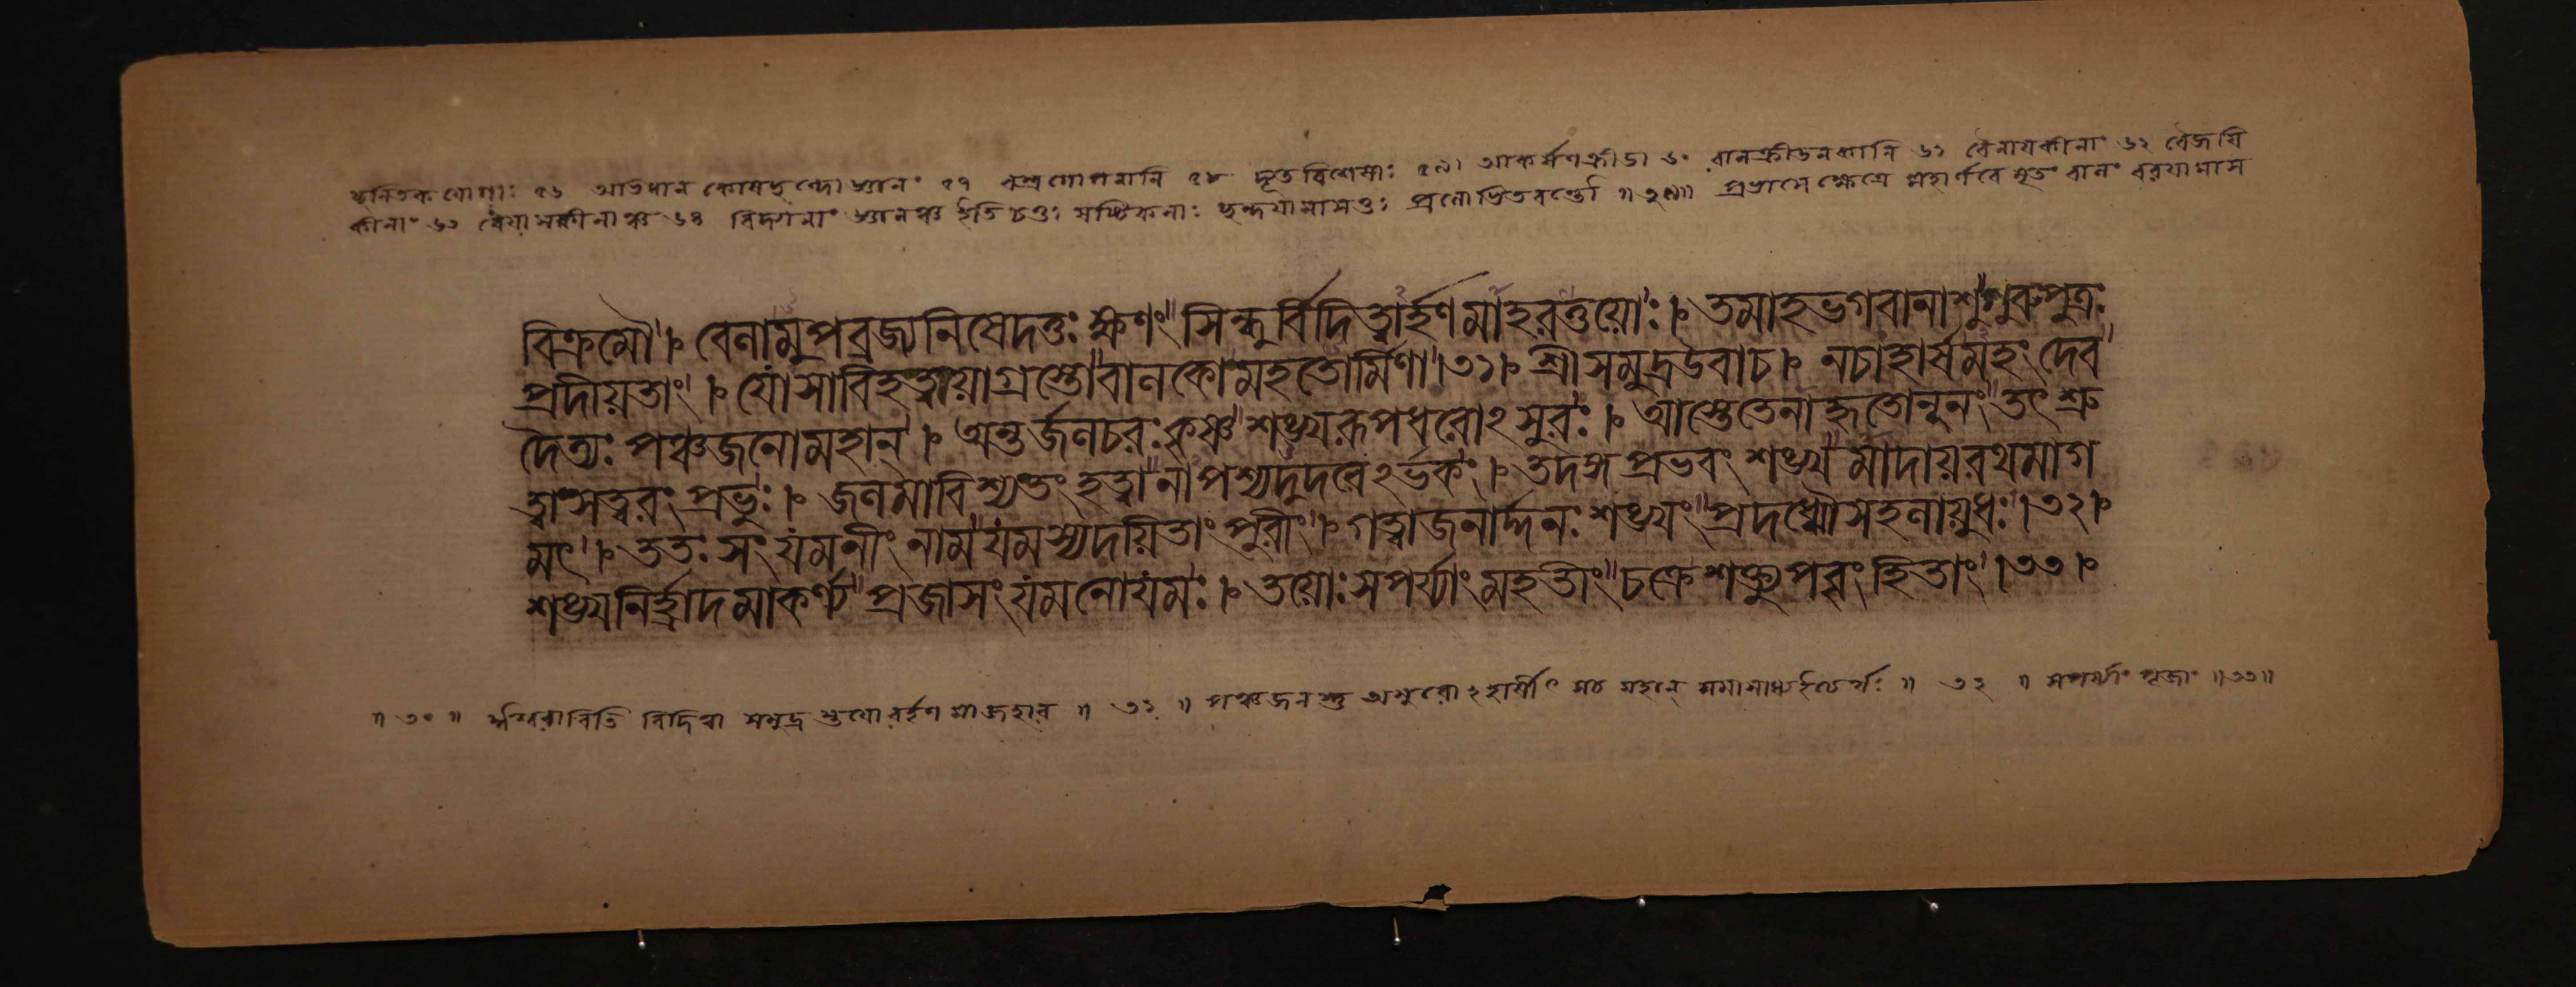 ছলিতকযোগাঃ ৫৬ অভিধানকোষছন্দোজ্ঞানং ৫৭ বস্ত্রগোপনানি ৫৮ দ্যূতবিশেষাঃ ৫৯ আকর্ষণক্রীডা ৬০ বালক্রীডনকানি ৬১ বৈনায়কীনাং ৬২ বৈজয়ি
কীনাং ৬৩ বৈয়াসকীনাঞ্চ ৬৪ বিদ্যানাং জ্ঞানঞ্চ ইতি চতুঃ ষষ্টিকলাঃ ছন্দয়ামাসতুঃ প্রলোভিতবন্তৌ ॥ ২৯॥ প্রভাসে ক্ষেত্রে মহার্ণবে মৃতং বালং বরয়ামাস
বিক্রমৌ । বেলামুপব্রজ্যনিষেদতুঃ ক্ষণং সিন্ধুর্বিদিত্বার্হণমাহরত্তয়োঃ । তমাহভগবানাশুগুরুপুত্রঃ
প্রদীয়তাং । যোসাবিহত্বয়াগ্রস্তোবালকোমহতোর্মিণা।৩১। শ্রীসমুদ্রউবাচ । নচাহার্ষমহং দেব
দৈত্যঃ পঞ্চজনোমহান্ । অন্তর্জলচরঃকৃষ্ণশঙ্খরূপধরোঽসুরঃ । আস্তেতেনাহৃতোনূনং তৎ শ্রু
ত্বাসত্বরং প্রভুঃ । জলমাবিশ্যতং হত্বানাপশ্যদুদরেঽর্ভকং । তদঙ্গপ্রভবং শঙ্খমাদায়রথমাগ
মৎ । ততঃ সংযমনীং নামযমস্যদয়িতাং পুরীং । গত্বাজনার্দ্দনঃ শঙ্খং প্রদধ্মৌসহলায়ুধঃ ।৩২।
শঙ্খনির্হ্রাদমাকর্ণ্য প্রজাসংযমনোযমঃ । তয়োঃ সপর্য্যাং মহতীং চক্রেশক্ত্যুপবৃংহিতাং ।৩৩।
॥ ৩০ ॥ ঈশ্বরাবিতি বিদিত্বা সমুদ্র স্তয়োরর্হণ মাজহার ॥ ৩১ ॥ পঞ্চজনস্তু অসুরোঽহার্ষীৎ ॥ ৩২ ॥ সপর্য্যাং পূজাং ॥৩৩॥